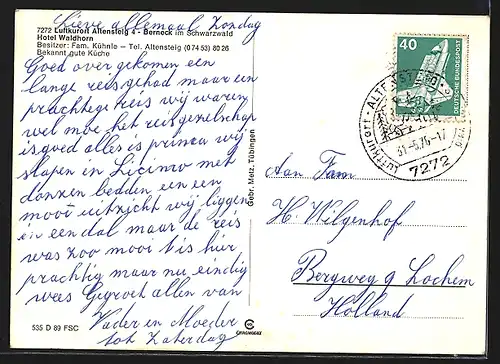 Lieve allemaal Zondag
7272 Luftkurort Altensteig 4 - Berneck im Schwarzwald
Hotel Waldhorn
Besitzer: Fam. Kühnle – Tel. Altensteig (0 74 53) 80 26
Bekannt gute Küche
Goed over gekomen een
lange reis gehad maar een
prachtige reis wij waren
wel moe het reisgezelschap
is goed alles is prima wij
slapen in
donzen bedden een een
mooi uitzicht wij liggen
in een dal maar de reis
was zoo mooi tis hier
prachtig maar nu eindig
wees Gegroet allen van
Vader en Moeder
tot Zaterdag
535 D 89 FSC
Gebr. Metz, Tübingen
40
DEUTSCHE BUNDESPOST
Luftkurort · ALTENSTEIG
-5.76-17
7272
Aan Fam
H. Wilgenhof
Bergweg 9 Lochem
Holland